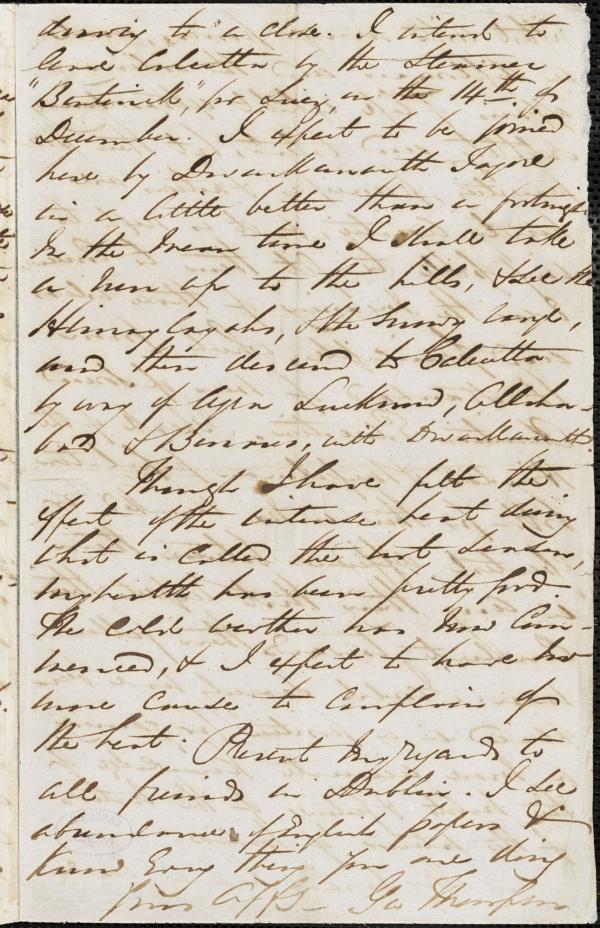 drawing to a close. I intend to
leave Calcutta by the Steamer
"Bentinck," for Suez, on the 14th. of
December. I expect to be joined
here by Dwarkanauth Tagore
in a little better than a fortnight
In the mean time I shall take
a run up to the hills, & see the
Himmalayahs, & the Snowy range,
and then descend to Calcutta
by way of Agra Lucknow, Allaha-
bad & Benares, with Dwarkanauth.
Though I have felt the
effect of the intense heat during
what is called the hot Season,
my health has been pretty good.
The cold weather has now Com-
menced, & I expect to have no
more cause to complain of
the heat. Present my regards to
all friends in Dublin. I see
abundance of English papers &
know every thing you are doing
Yours affy Geo Thompson